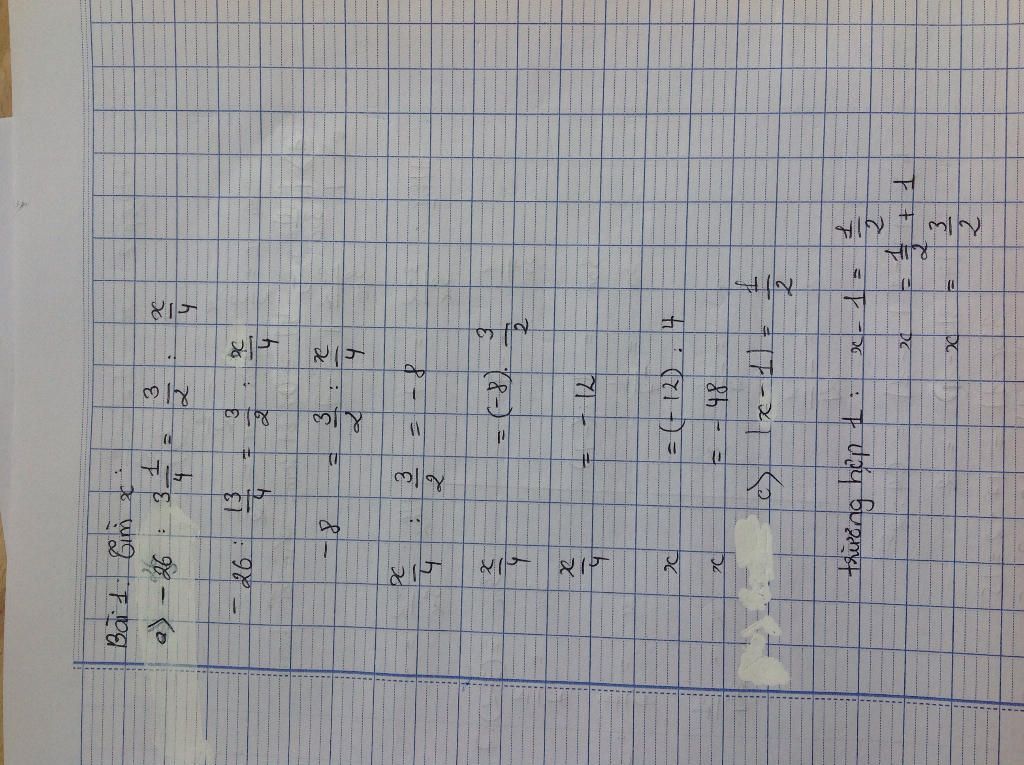 Bài 1: Tìm x:
a) -26 : 3 1/4 = 3/2 : x/4
-26 : 13/4 = 3/2 : x/4
-8 = 3/2 : x/4
x/4 : 3/2 = -8
x/4 = (-8) . 3/2
x/4 = -12
x = (-12) . 4
x = -48
c) |x - 1| = 1/2
trường hợp 1 : x - 1 = 1/2
x = 1/2 + 1
x = 3/2